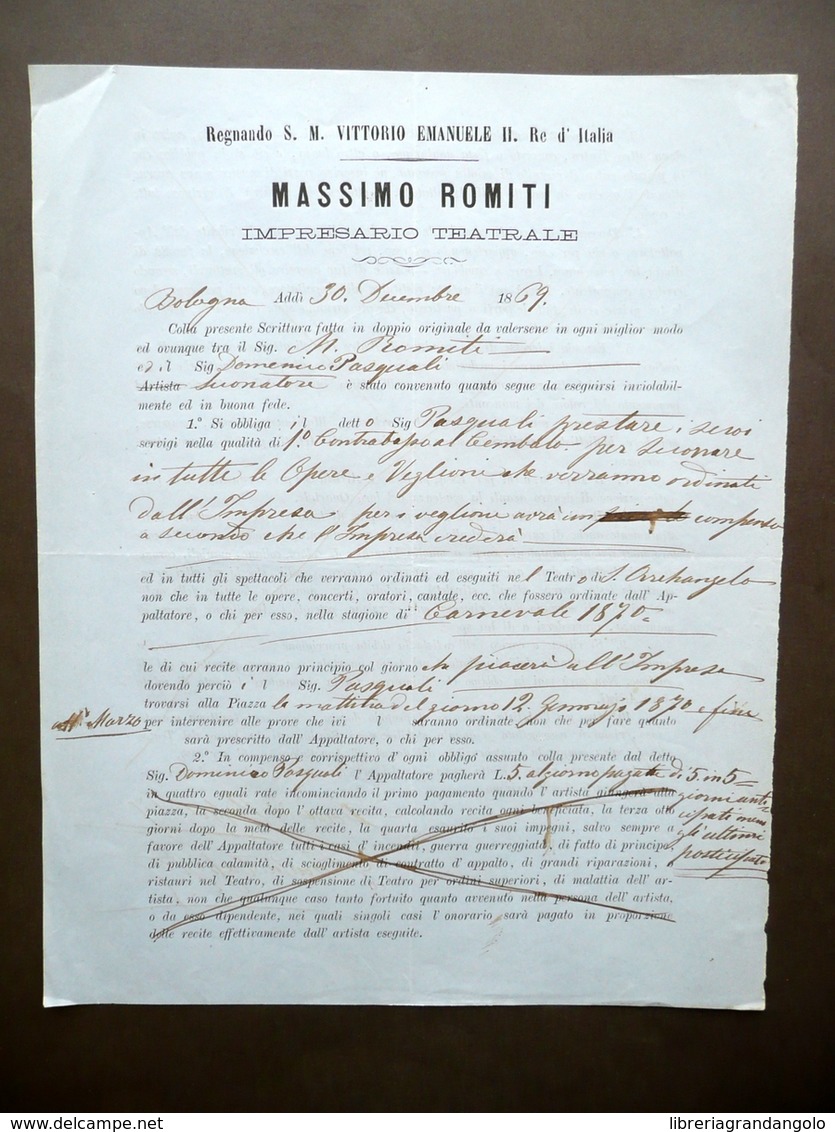 Regnando S. M. VITTORIO EMANUELE II. Re d' Italia
MASSIMO ROMITI
IMPRESARIO TEATRALE
Bologna Addì 30. Decembre 1869.
Colla presente Scrittura fatta in doppio originale da valersene in ogni miglior modo
ed ovunque tra il Sig. M. Romiti
ed il Sig Domenico Pasquali
Artista suonatore è stato convenuto quanto segue da eseguirsi inviolabil-
mente ed in buona fede.
1.° Si obbliga il detto Sig Pasquali prestare i servi
servigi nella qualità di 1° Contrabasso al Cembalo per suonare
in tutte le Opere e Veglioni che verranno ordinati
dall'Impresa per i veglione avrà un compenso
a secondo che l'Impresa crederà
ed in tutti gli spettacoli che verranno ordinati ed eseguiti nel Teatro di S. Archangelo
non che in tutte le opere, concerti, oratori, cantate, ecc. che fossero ordinate dall' Ap-
paltatore, o chi per esso, nella stagione di Carnevale 1870
le di cui recite avranno principio col giorno che piacerà all'Impresa
dovendo perciò il Sig. Pasquali
trovarsi alla Piazza la mattina del giorno 12. Gennajo 1870 e fine
all' Marzo per intervenire alle prove che ivi l saranno ordinate, non che per fare quanto
sarà prescritto dall' Appaltatore, o chi per esso.
2.° In compenso e corrispettivo d'ogni obbligo assunto colla presente dal detto
Sig. Domenico Pasquali l' Appaltatore pagherà L. 5. al giorno pagate di 5 in 5
giorni anti-
cipati meno
gli ultimi
posticipato
in quattro eguali rate incominciando il primo pagamento quando l' artista giungerà alla
piazza, la seconda dopo l' ottava recita, calcolando recita ogni beneficiata, la terza otto
giorni dopo la metà delle recite, la quarta esaurito i suoi impegni, salvo sempre a
favore dell' Appaltatore tutti i casi d' incendi, guerra guerreggiata, di fatto di principe,
di pubblica calamità, di scioglimento di contratto d' appalto, di grandi riparazioni,
ristauri nel Teatro, di sospensione di Teatro per ordini superiori, di malattia dell' ar-
tista, non che qualunque caso tanto fortuito quanto avvenuto nella persona dell' artista,
o da esso dipendente, nei quali singoli casi l' onorario sarà pagato in proporzione
delle recite effettivamente dall' artista eseguite.
Delcampe.net
libreriagrandangolo